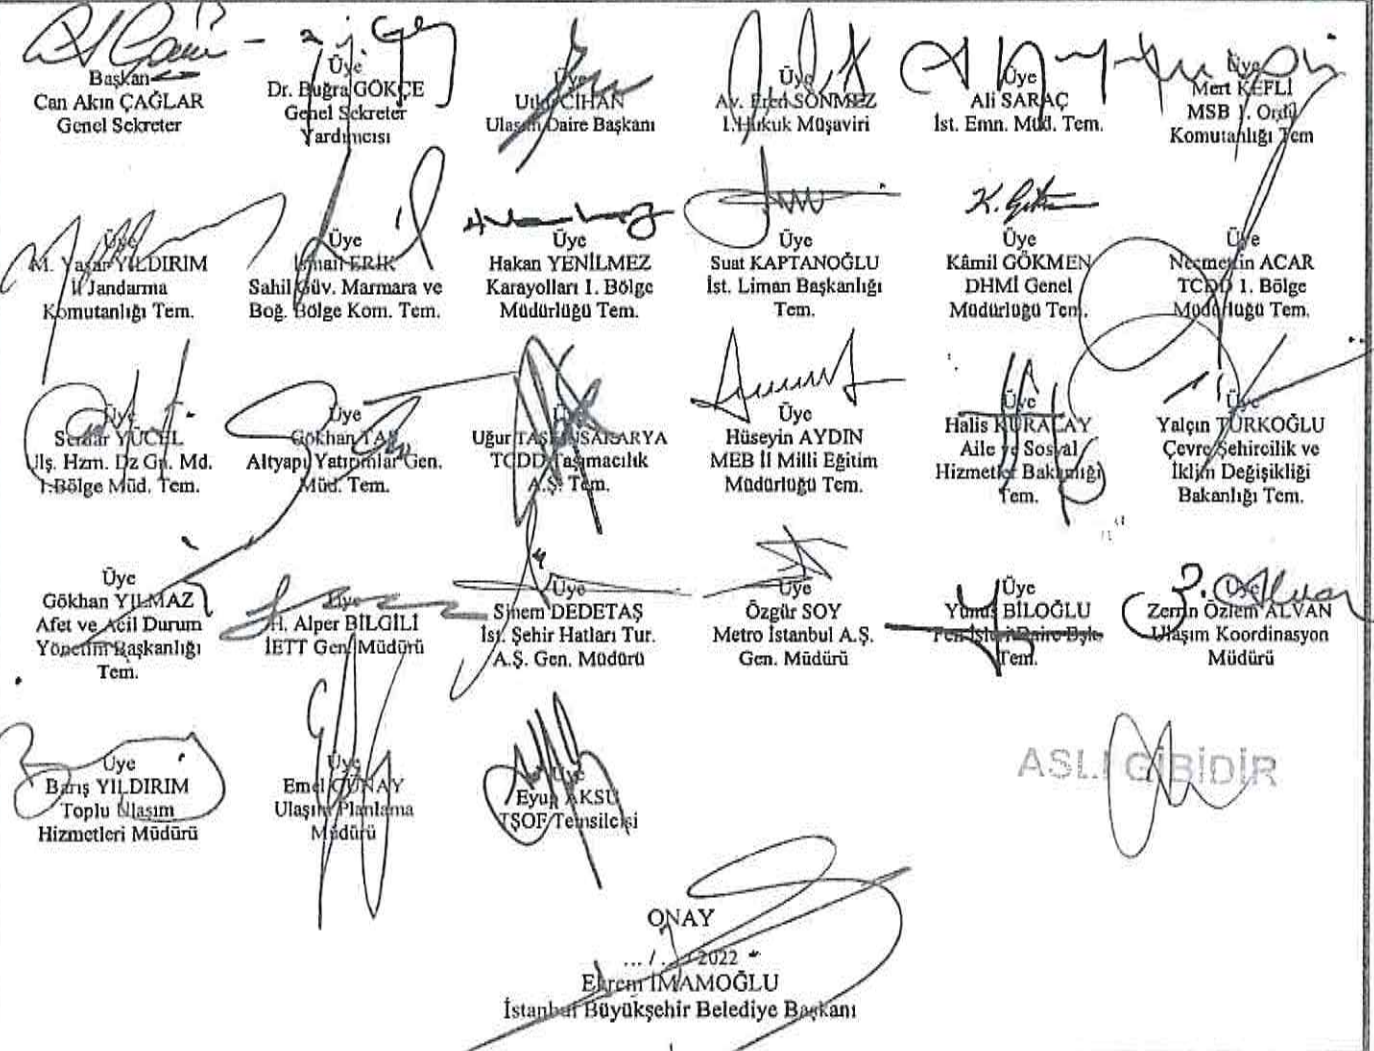 Başkan
Can Akın ÇAĞLAR
Genel Sekreter
Üye
Dr. Buğra GÖKÇE
Genel Sekreter
Yardımcısı
Üye
Utku CİHAN
Ulaşım Daire Başkanı
Üye
Av. Eren SÖNMEZ
1.Hukuk Müşaviri
Üye
Ali SARAÇ
İst. Emn. Müd. Tem.
Üye
Mert KEFLİ
MSB 1. Ordu
Komutanlığı Tem
Üye
M. Yaşar YILDIRIM
İl Jandarma
Komutanlığı Tem.
Üye
ERİK
Sahil Güv. Marmara ve
Boğ. Bölge Kom. Tem.
Üye
Hakan YENİLMEZ
Karayolları 1. Bölge
Müdürlüğü Tem.
Üye
Suat KAPTANOĞLU
İst. Liman Başkanlığı
Tem.
K. Gökmen
Üye
Kâmil GÖKMEN
DHMİ Genel
Müdürlüğü Tem.
Üye
Necmettin ACAR
TCDD 1. Bölge
Müdürlüğü Tem.
Üye
Serdar YÜCEL
Ulş. Hzm. Dz Gn. Md.
1.Bölge Müd. Tem.
Üye
Gökhan
Altyapı Yatırımlar Gen.
Müd. Tem.
Üye
Uğur
TCDD Taşımacılık
A.Ş. Tem.
Üye
Hüseyin AYDIN
MEB İl Milli Eğitim
Müdürlüğü Tem.
Üye
Halis KURALAY
Aile ve Sosyal
Hizmetler Bakanlığı
Tem.
Üye
Yalçın TÜRKOĞLU
Çevre Şehircilik ve
İklim Değişikliği
Bakanlığı Tem.
Üye
Gökhan YILMAZ
Afet ve Acil Durum
Yönetim Başkanlığı
Tem.
Üye
H. Alper BİLGİLİ
İETT Gen. Müdürü
Üye
Sinem DEDETAŞ
İst. Şehir Hatları Tur.
A.Ş. Gen. Müdürü
Üye
Özgür SOY
Metro İstanbul A.Ş.
Gen. Müdürü
Üye
Yunus BİLOĞLU
Fen İşleri Daire Bşk.
Tem.
Üye
Zemin Özlem ALVAN
Ulaşım Koordinasyon
Müdürü
Üye
Barış YILDIRIM
Toplu Ulaşım
Hizmetleri Müdürü
Üye
Emel GÜNAY
Ulaşım Planlama
Müdürü
Üye
Eyup AKSU
TŞOF Temsilcisi
ASLI GİBİDİR
ONAY
... / ... / 2022
Ekrem İMAMOĞLU
İstanbul Büyükşehir Belediye Başkanı